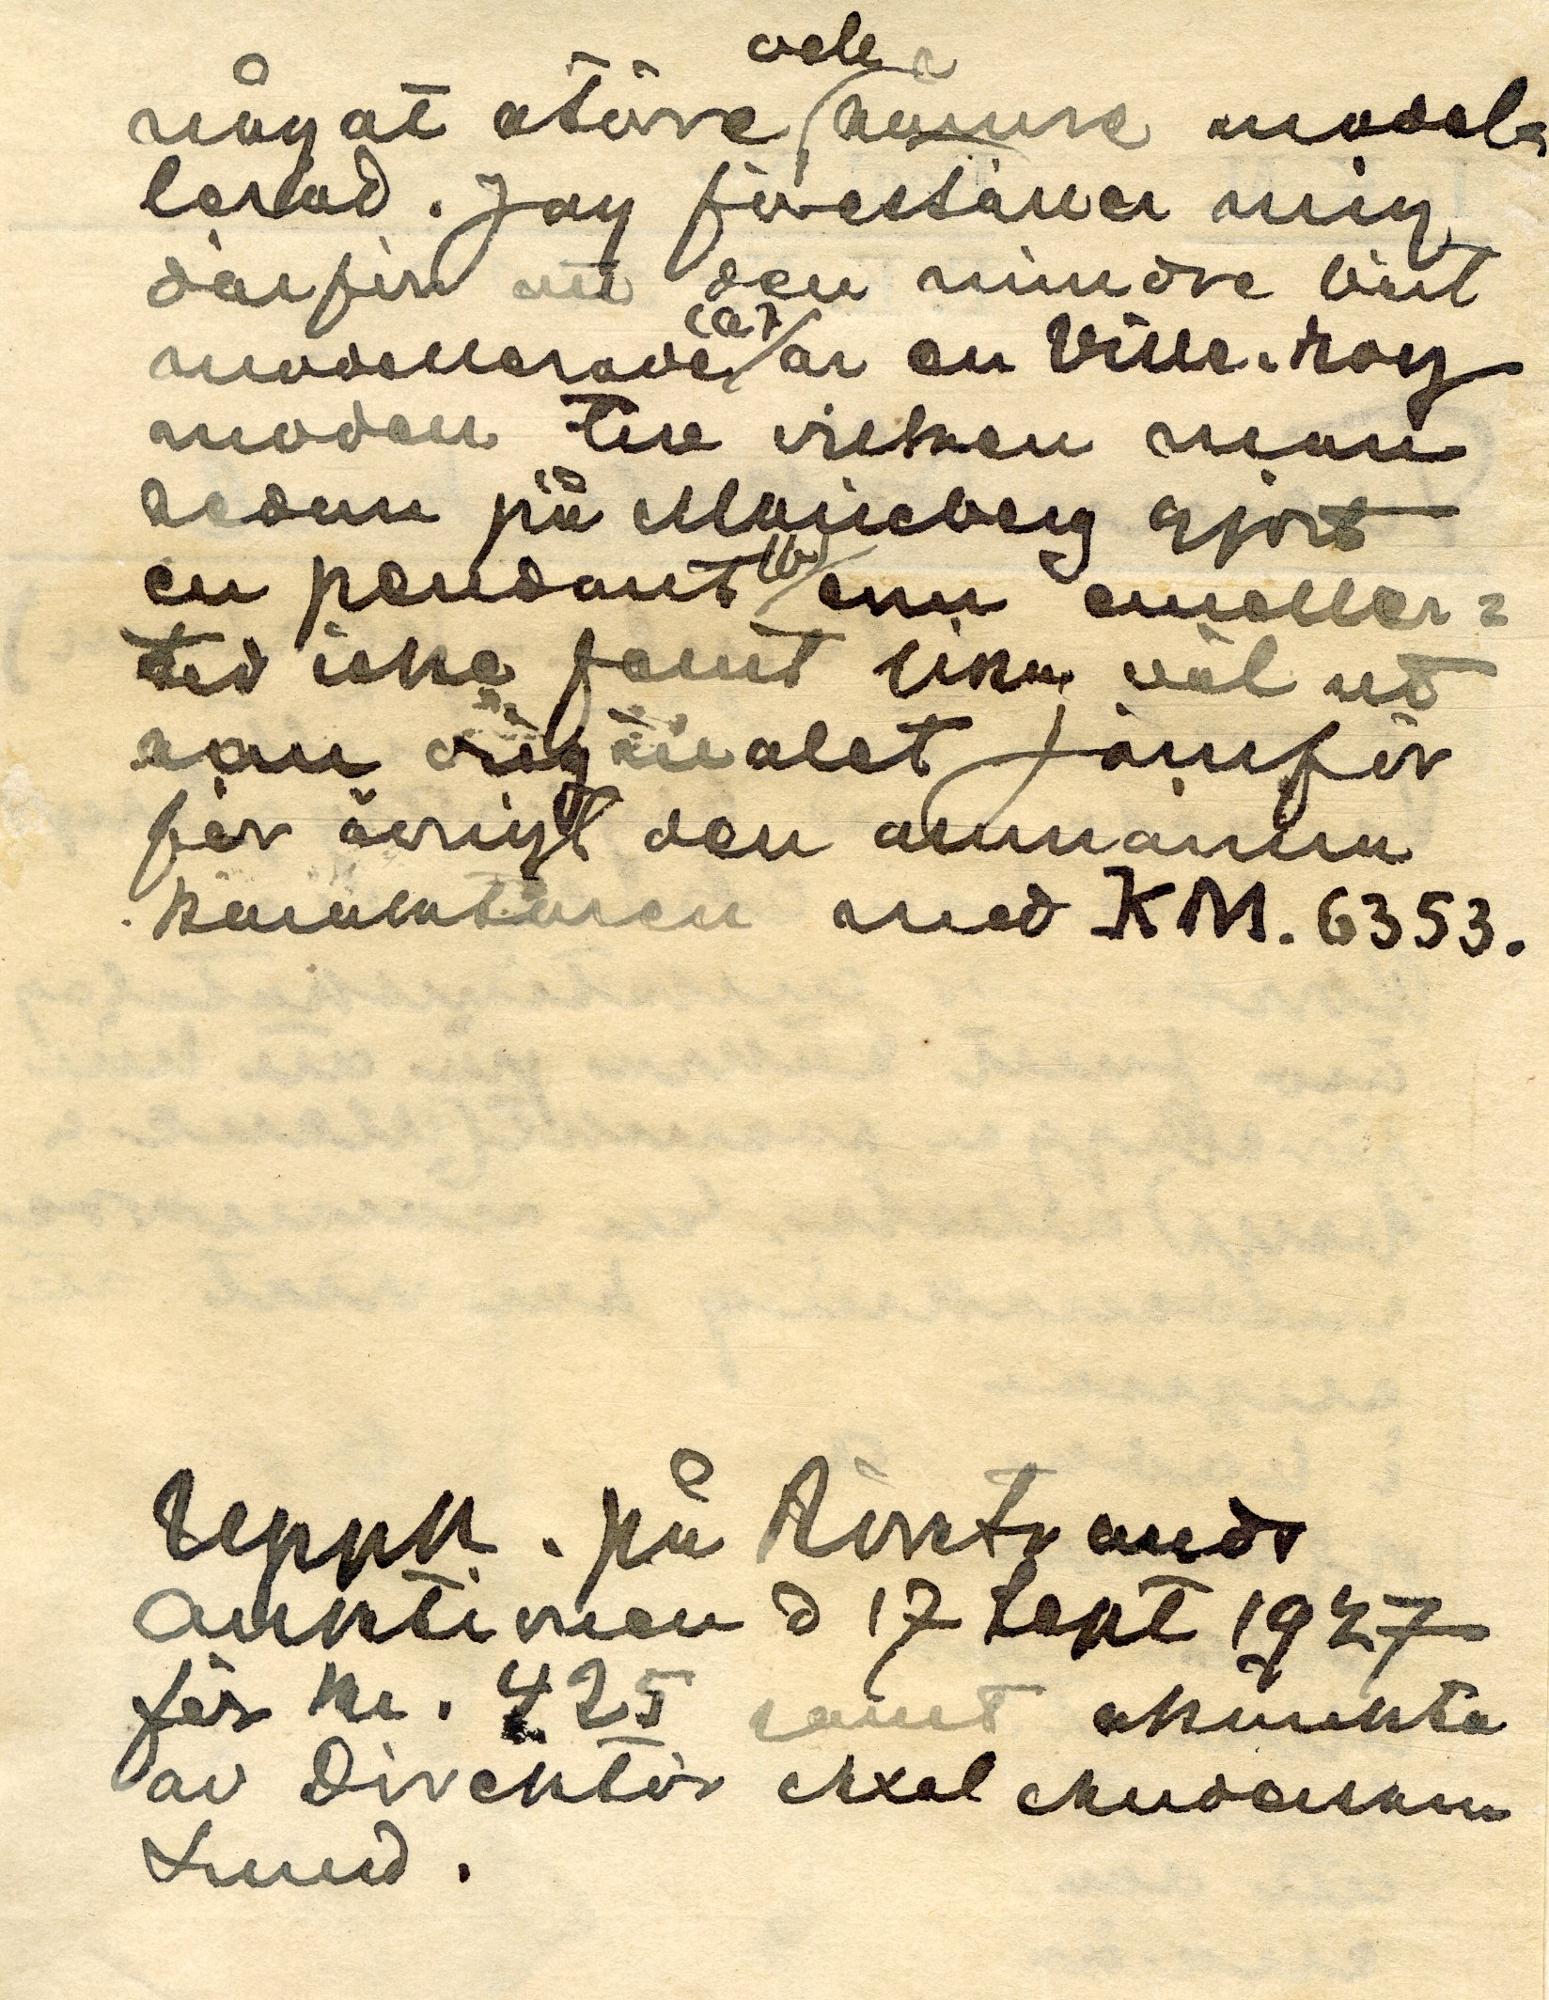 och
något större sämre model-
lerad. Jag föreställer mig
därför att den mindre bäst
modellerade (a) är en Ville.roy
modell till vilken man
sedan på Marieberg gjort
en pendant (b) som emeller=
tid icke fallit lika väl ut
som originalet Jämför
för övrigt den allmänna
karaktären med KM. 6353.
Uppk. på Rörstrands
Auktionen d 17 Sept 1927
för kr. 425 samt skänkta
av Direktör Axel Andersson
Lund.